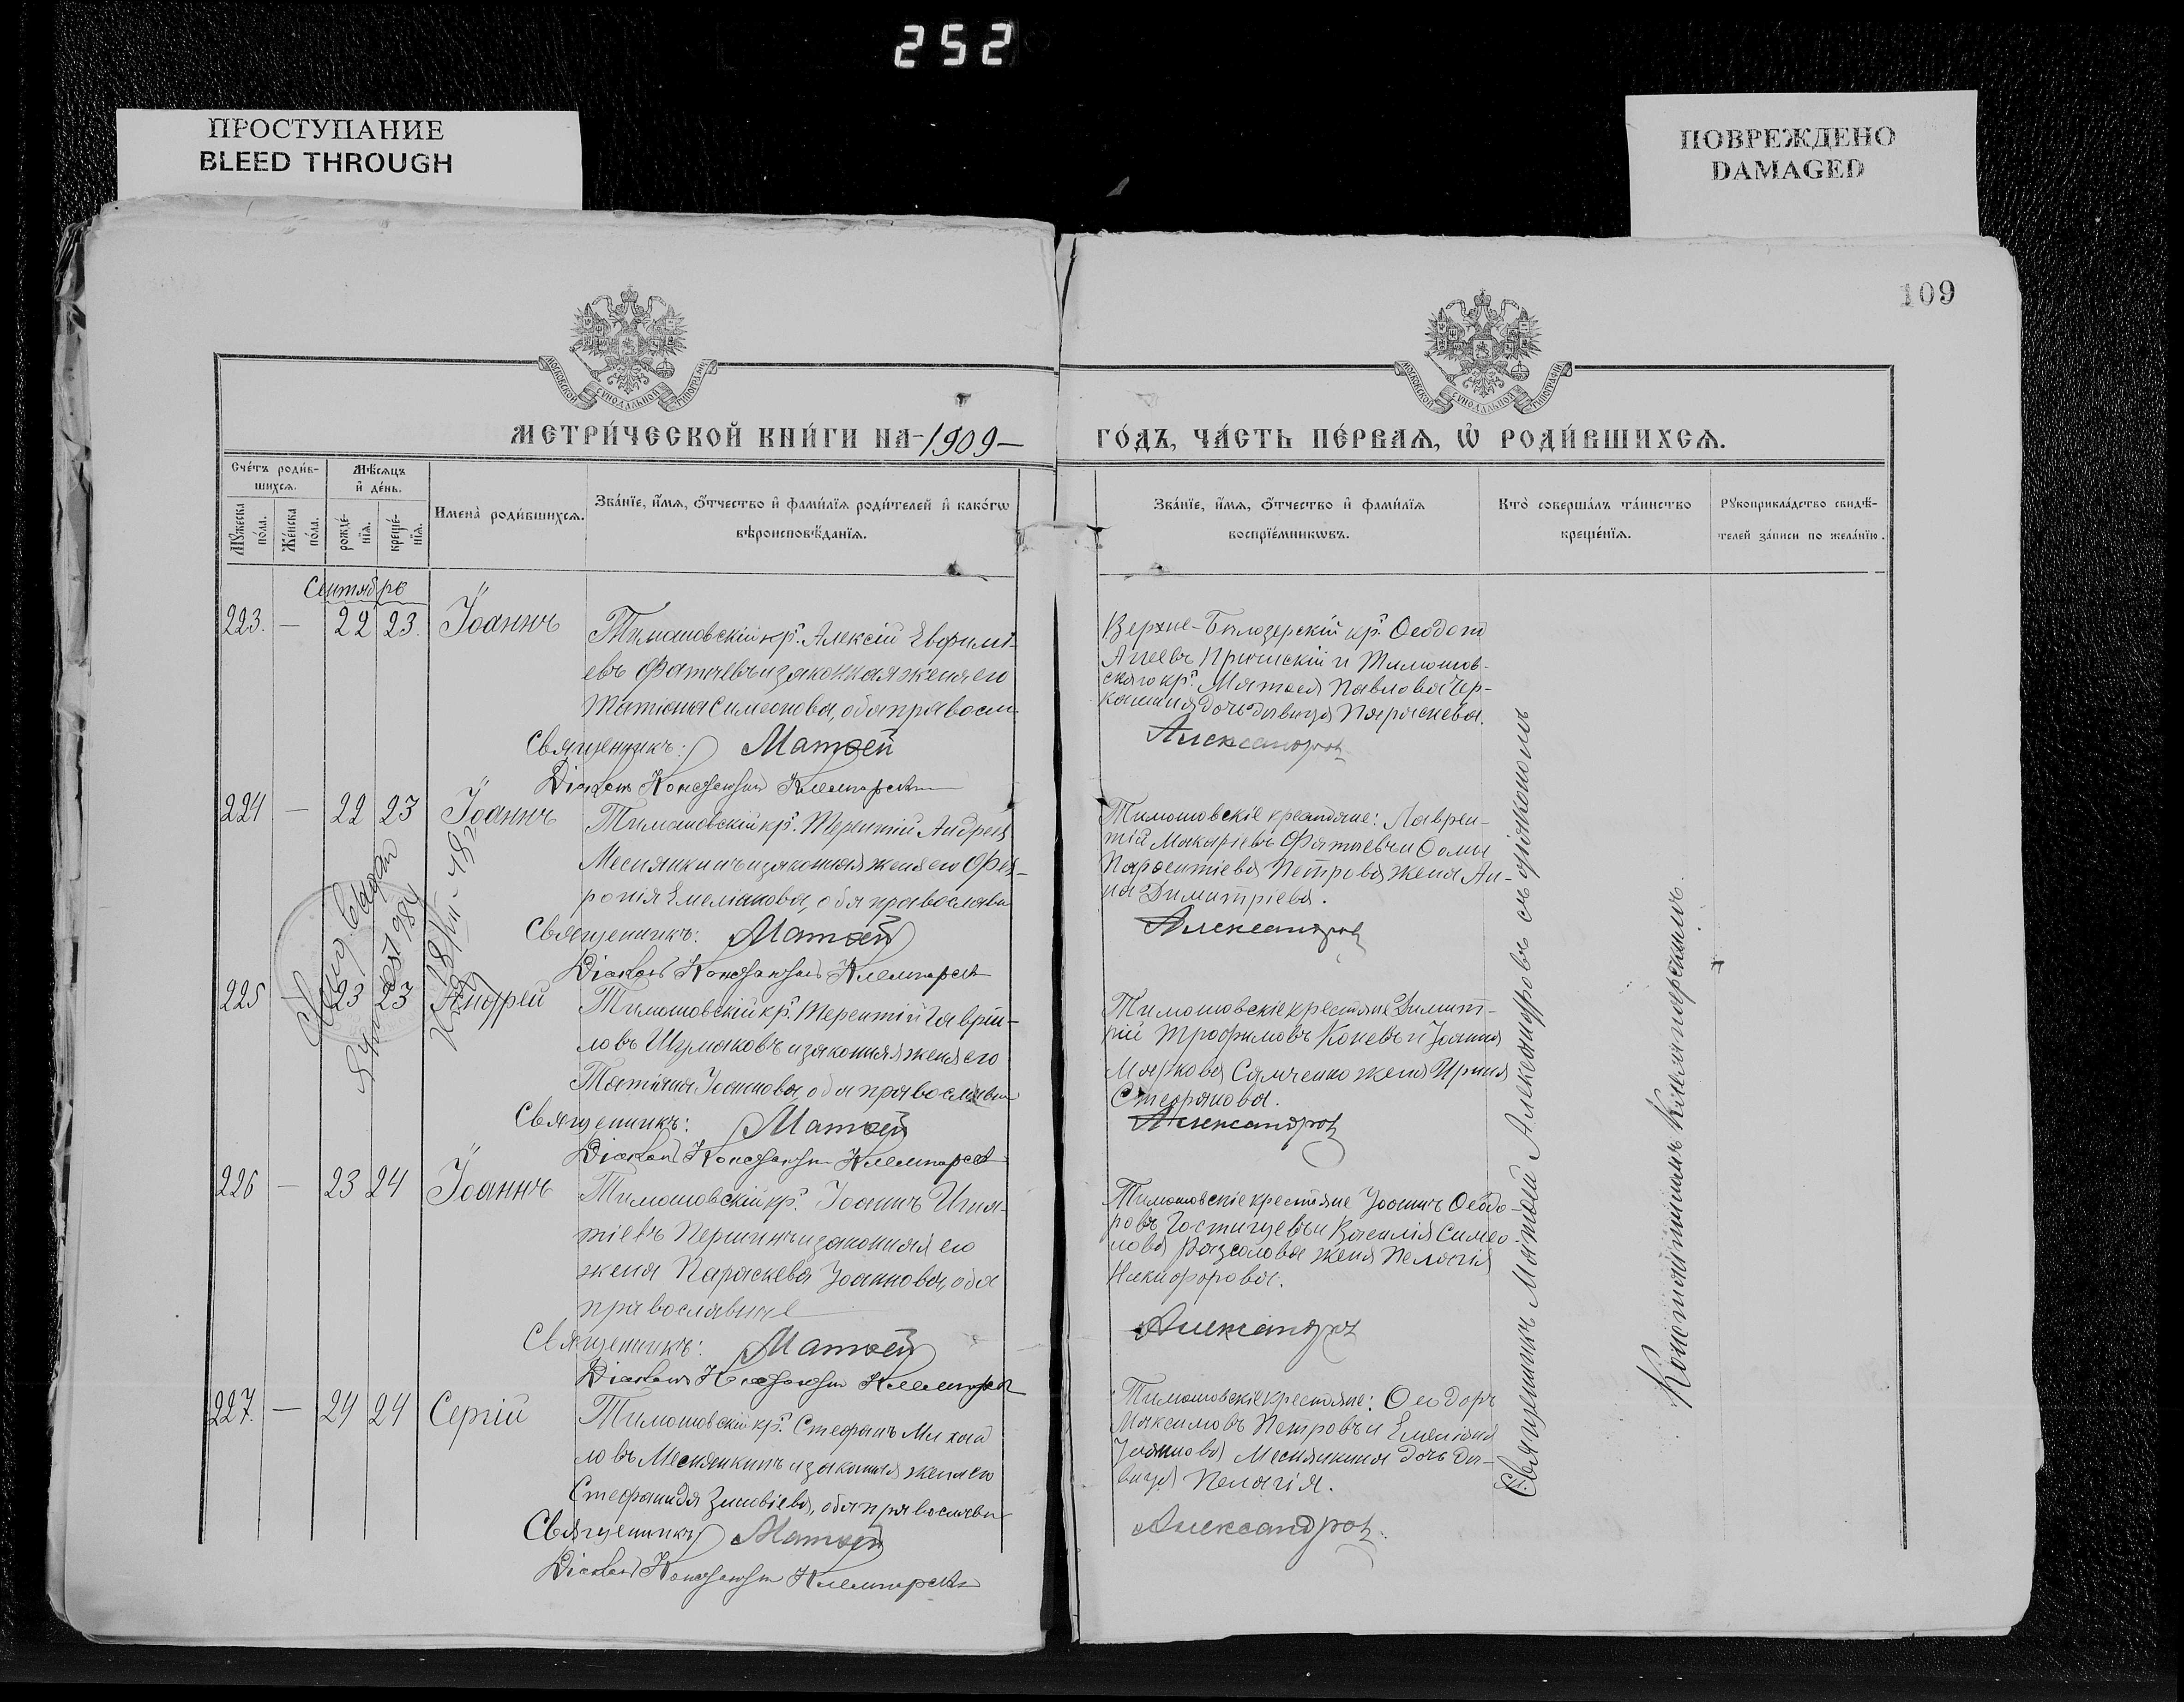 252
ПРОСТУПАНИЕ
BLEED THROUGH
ПОВРЕЖДЕНО
DAMAGED
109
МОСКОВСКОЙ СѴНОДАЛЬНОЙ ТИПОГРАФІИ
МОСКОВСКОЙ СѴНОДАЛЬНОЙ ТИПОГРАФІИ
МЕТРИ́ЧЕСКОЙ КНИ́ГИ НА -1909-
ГО́ДЪ, ЧА́СТЬ ПЕ́РВАѦ, Ѡ҆ РОДИ́ВШИХСѦ.
Сче́тъ роди́в-
шихсѧ.
Мѣ́сѧцъ
и҆ де́нь.
Мꙋ́жеска
по́ла.
Же́нска
по́ла.
рожде́-
нїѧ.
креще́-
нїѧ.
Имена̀ роди́вшихсѧ.
Зва́нїе, и҆́мѧ, ѻ҆́тчество и҆ фами́лїѧ роди́телей и҆ како́гѡ
вѣроисповѣ́данїѧ.
Зва́нїе, и҆́мѧ, ѻ҆́тчество и҆ фами́лїѧ
воспрїе́мникѡвъ.
Кто̀ соверша́лъ та́инство
креще́нїѧ.
Рꙋкоприкла́дство свидѣ́-
телей за́писи по жела́нїю.
Сентябрь
223. — 22 23. Іоаннъ
Тимошовскій кр. Алексій Евфимі-
евъ Фатѣевъ и законная жена его
Татіана Симеонова, оба правосл.
Священникъ: Матѳей
Діаконъ Константинъ
Верхне-Бѣлозерскій кр. Ѳеодотъ
и Тимошов-
скаго кр. Матѳея Павлова Чер-
кашина дочь дѣвица Параскева.
Александровъ
224 — 22 23 Іоаннъ
Тимошовскій кр. Терентій Андреев
Меснянкинъ и законная жена его Фев-
ронія Емеліанова, оба православн
Священникъ: Матѳей
Діаконъ Константинъ
Тимошовскіе крестьяне: Лаврен-
тій Макаріевъ Фатѣевъ и Ѳомы
Парѳентіева Петрова жена Ан-
на Димитріева.
Александровъ
225 23 23 Андрей
Тимошовскій кр. Терентій Гаврі-
ловъ Шумаковъ и законная жена его
Татіана Іоаннова, оба православн
Священникъ: Матѳей
Діаконъ Константинъ
Тимошовскіе крестьяне Димит-
рій Трофимовъ Коневъ и Іоанна
Маркова Самченко жена Ирина
Стефанова.
Александровъ
226 — 23 24 Іоаннъ
Тимошовскій кр. Іоаннъ Игна-
тіевъ Першинъ и законная его
жена Параскева Іоаннова, оба
православные
Священникъ: Матѳей
Діаконъ Константинъ
Тимошовскіе крестьяне Іоаннъ Ѳеодо-
ровъ Гостищевъ и Василія Симео-
нова жена Пелагія
Никифорова.
Александровъ
227. — 24 24 Сергій
Тимошовскій кр. Стефанъ Михай
ловъ Меснянкинъ и законная жена его
Стефанида Зиновіева, оба православн
Священникъ Матѳей
Діаконъ Константинъ
Тимошовскіе крестьяне: Ѳеодоръ
Максимовъ Петровъ и Емеліана
Іоаннова Меснянкина дочь дѣ-
вица Пелагія.
Александровъ.
Священникъ Матѳей Александровъ съ діакономъ
Константиномъ